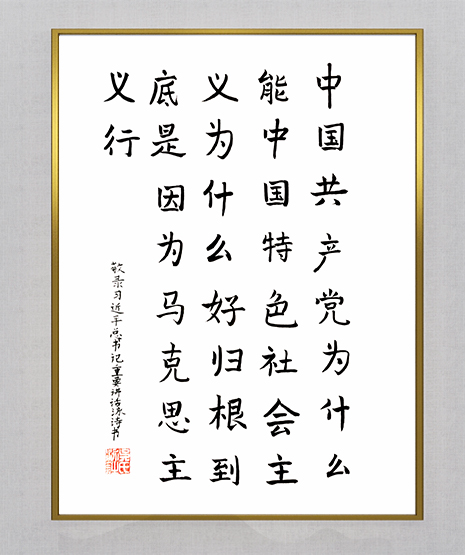 中国共产党为什么
能中国特色社会主
义为什么好归根到
底是因为马克思主
义行
敬录习近平总书记重要讲话泳诗书